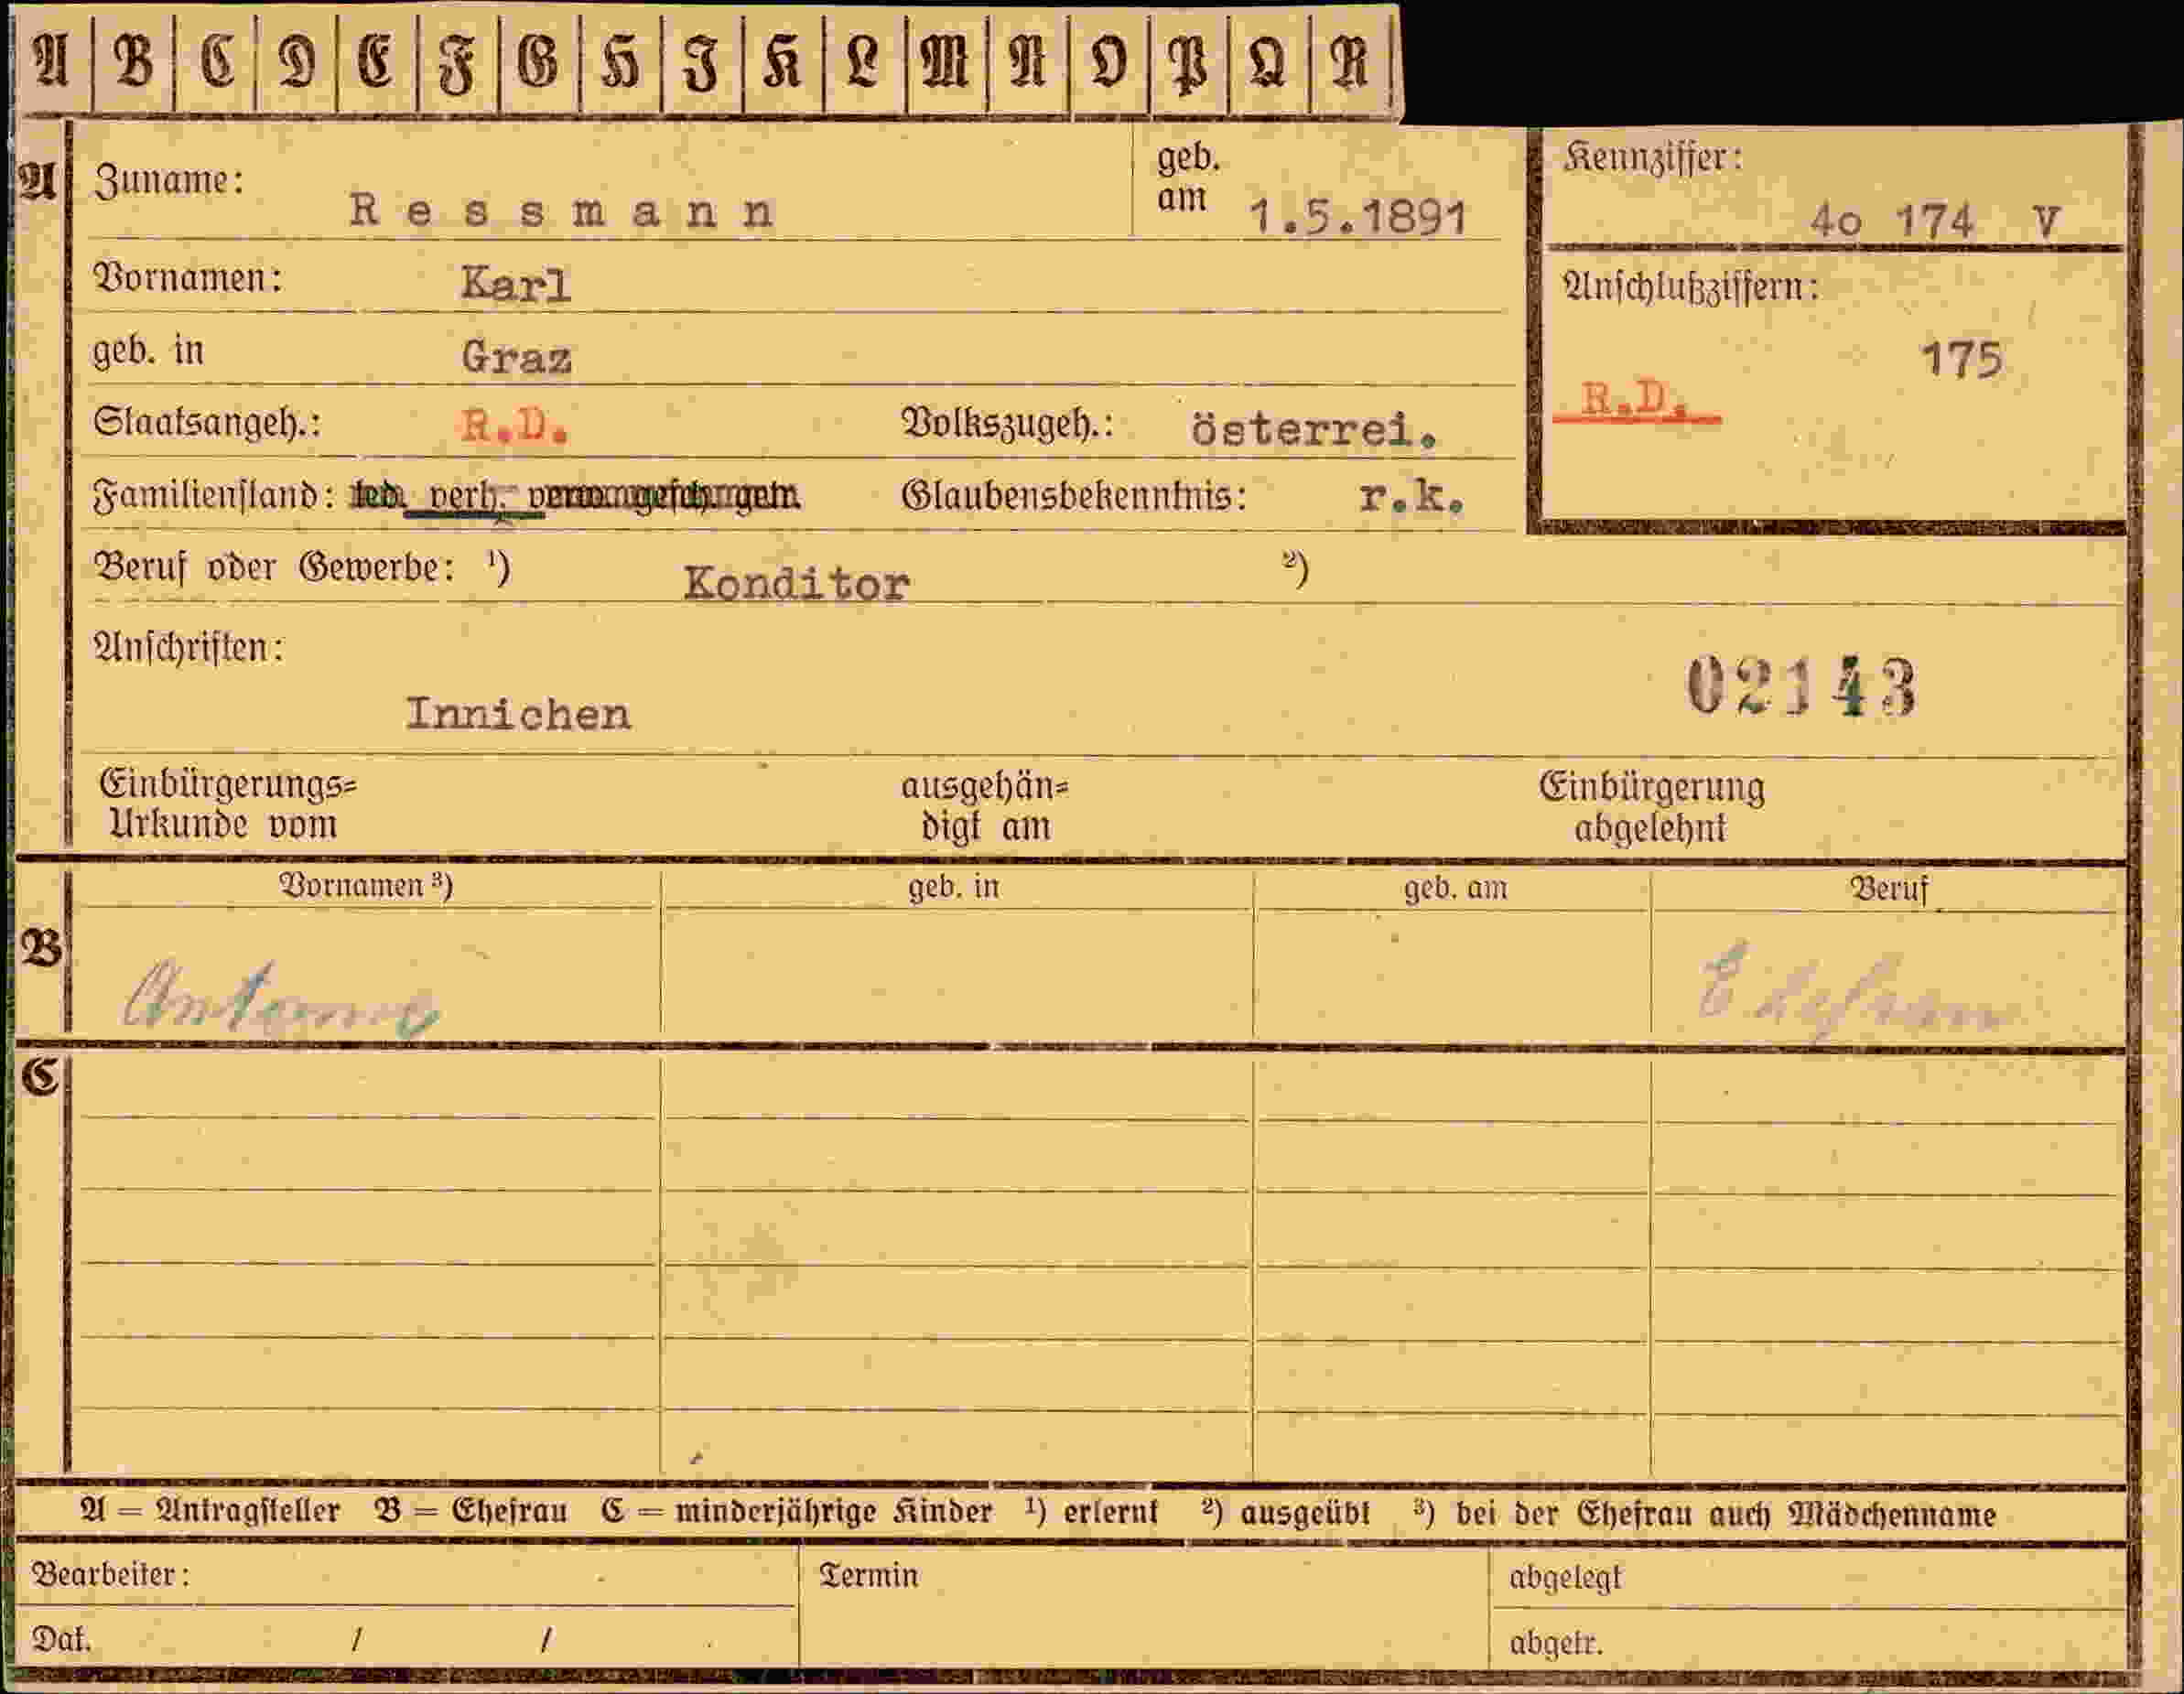 A B C D E F G H I K L M N O P Q R
A Zuname: Ressmann geb. am 1.5.1891 Kennziffer: 4o 174 V
Vornamen: Karl Anschlußziffern:
geb. in Graz 175
R.D.
Staatsangeh.: R.D. Volkszugeh.: österrei.
Familienstand: led. verh. verw. geschieden Glaubensbekenntnis: r.k.
Beruf oder Gewerbe: ¹) Konditor ²)
Anschriften:
02143
Innichen
Einbürgerungs= ausgehän= Einbürgerung
Urkunde vom digt am abgelehnt
Vornamen ³) geb. in geb. am Beruf
B Antonie Ehefrau
C
A = Antragsteller B = Ehefrau C = minderjährige Kinder ¹) erlernt ²) ausgeübt ³) bei der Ehefrau auch Mädchenname
Bearbeiter: Termin abgelegt
Dat. / / abgetr.